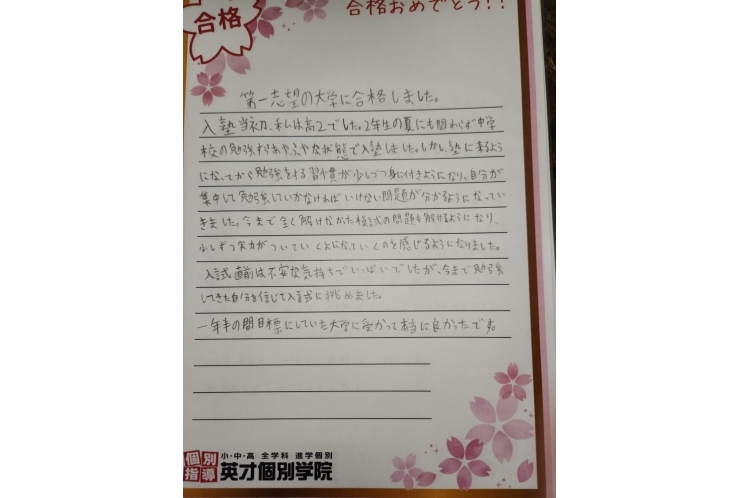 合格
合格おめでとう!!
第一志望の大学に合格しました。
入塾当初、私は高2でした。2年生の夏にも関わらず中学
校の勉強すらあやふやな状態で入塾しました。しかし、塾に来るよう
になってから勉強をする習慣が少しづつ身に付きようになり、自分が
集中して勉強していかなければいけない問題が分かるようになってい
きました。今まで全く解けなかった模試の問題も解けるようになり、
少しずつ実力がついていくようになっていくのを感じるようになりました。
入試直前は不安な気持ちでいっぱいでしたが、今まで勉強
してきた自分を信じて入試に挑めました。
一年半の間目標にしていた大学に受かって本当に良かったです
個別指導
小・中・高 全学科 進学個別
英才個別学院